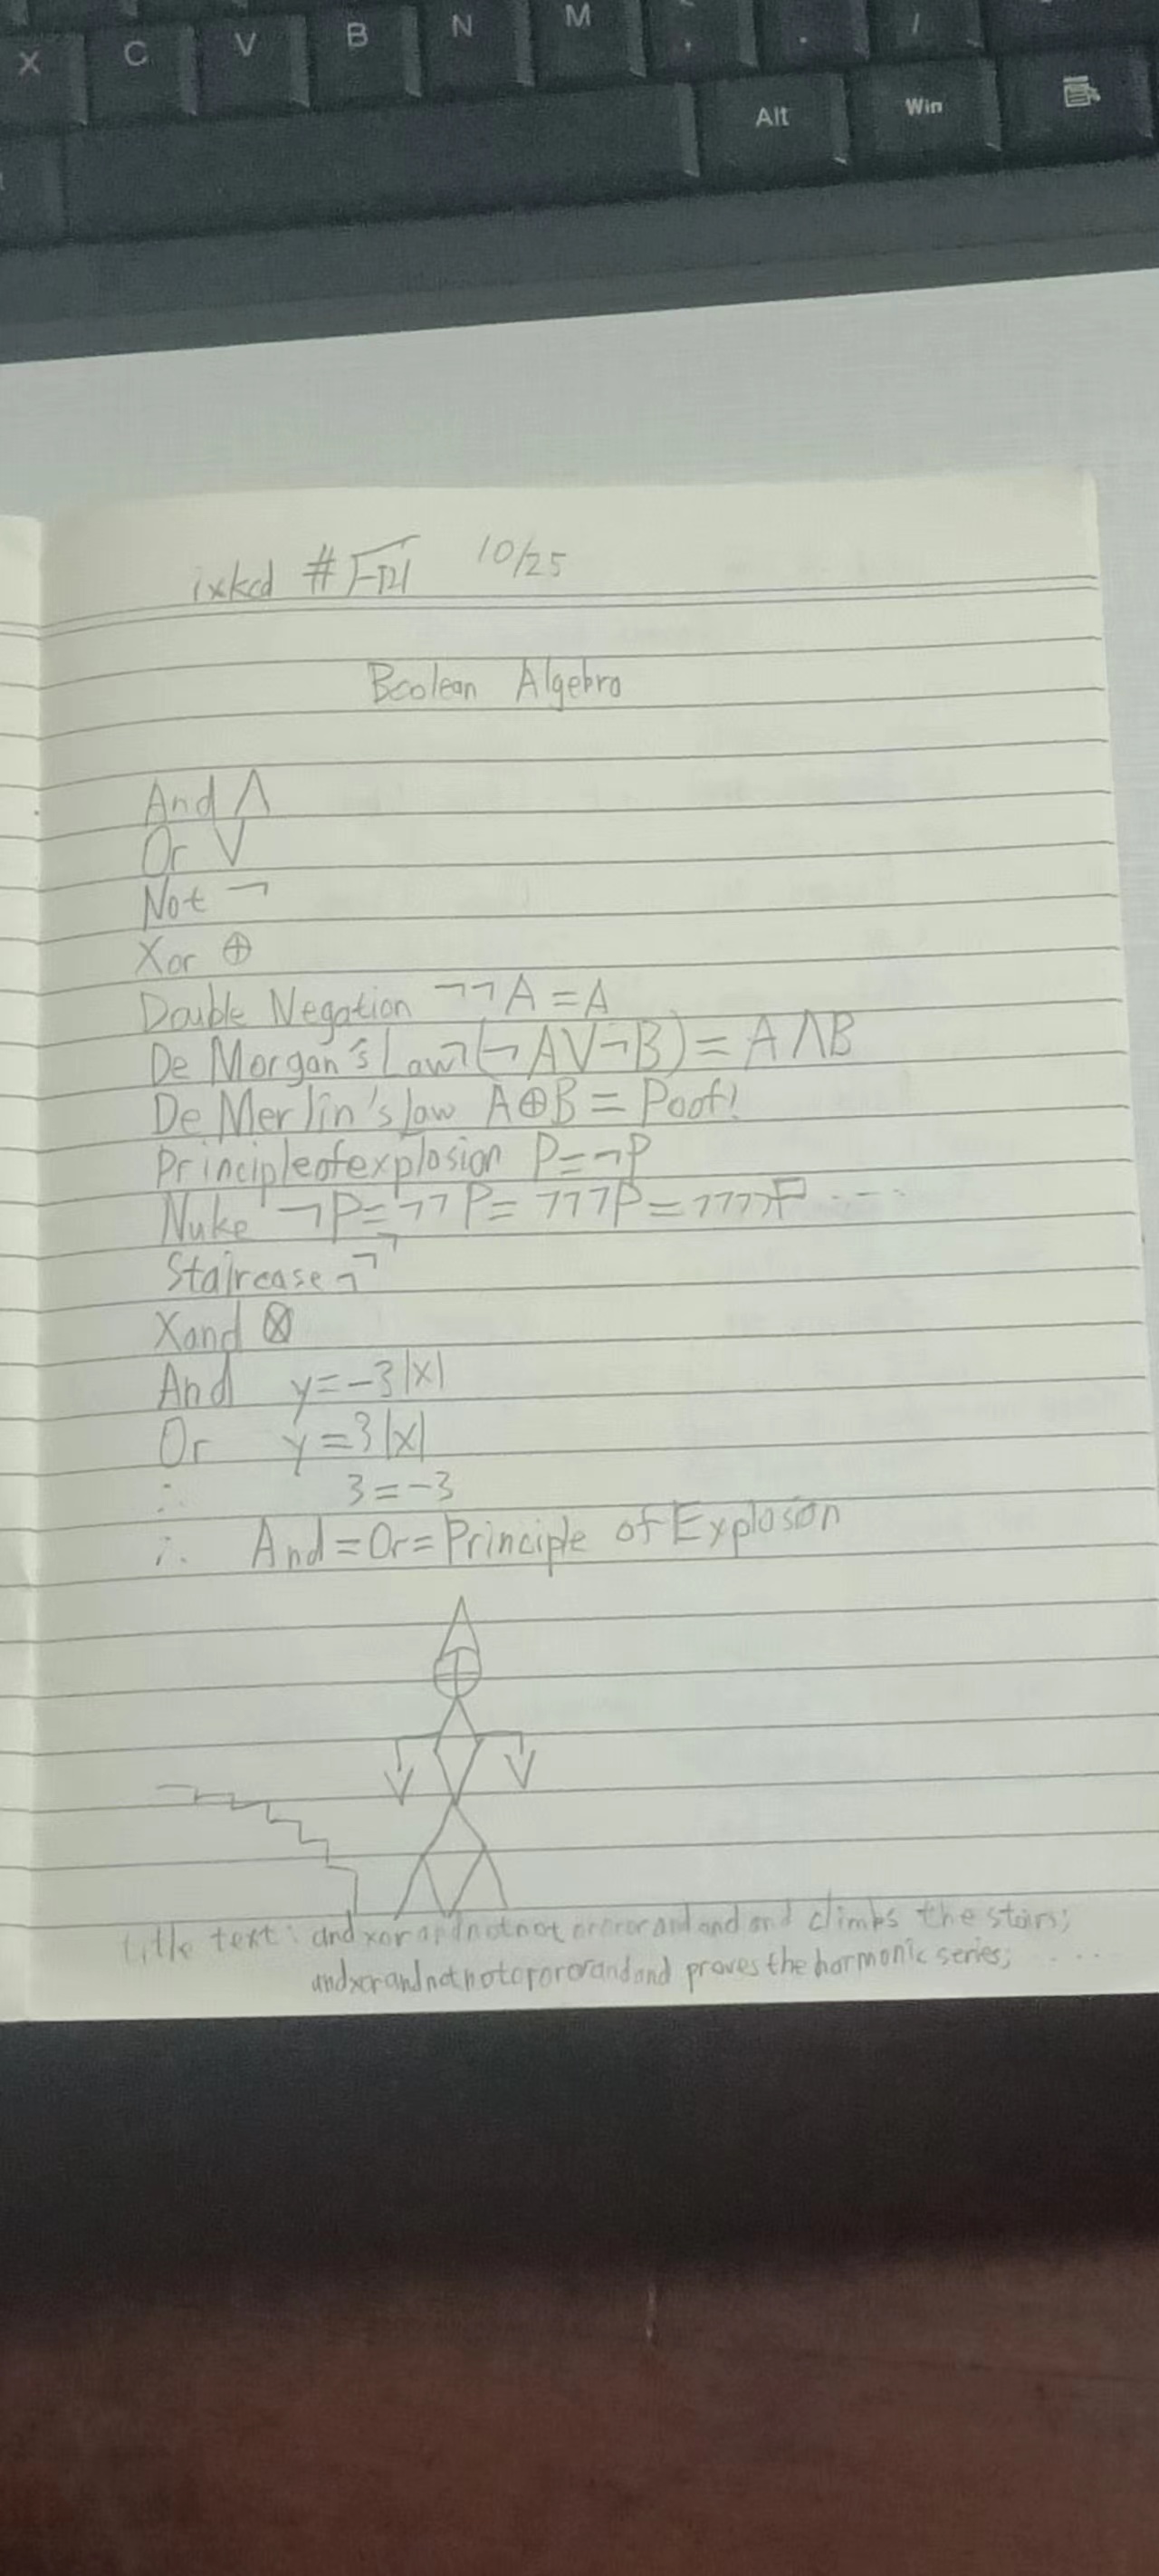 X C V B N M , . /
Alt Win
ixkcd #√-121 10/25
Boolean Algebra
And ∧
Or ∨
Not ¬
Xor ⊕
Double Negation ¬¬A = A
De Morgan's Law ¬(¬A∨¬B) = A∧B
De Merlin's law A⊕B = Poof!
Principle of explosion P=¬P
Nuke ¬P=¬¬P=¬¬¬P=¬¬¬¬P ....
Staircase ¬¬¬
Xand ⊗
And y=-3|x|
Or y=3|x|
∴ 3=-3
∴ And=Or=Principle of Exploson
title text: andxorandnotnotorororandandand climbs the stairs;
andxorandnotnotorororandand proves the harmonic series; ....